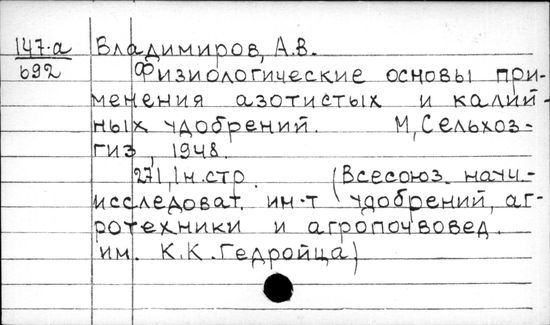 147-а Владимиров, А.В.
692 Физиологические основы при-
менения азотистых и калий-
ных удобрений. М, Сельхоз-
гиз, 1948.
271, 1н.стр. (Всесоюз. научн.-
исследоват. ин-т удобрений, аг-
ротехники и агропочвовед.
им. К.К. Гедройца)